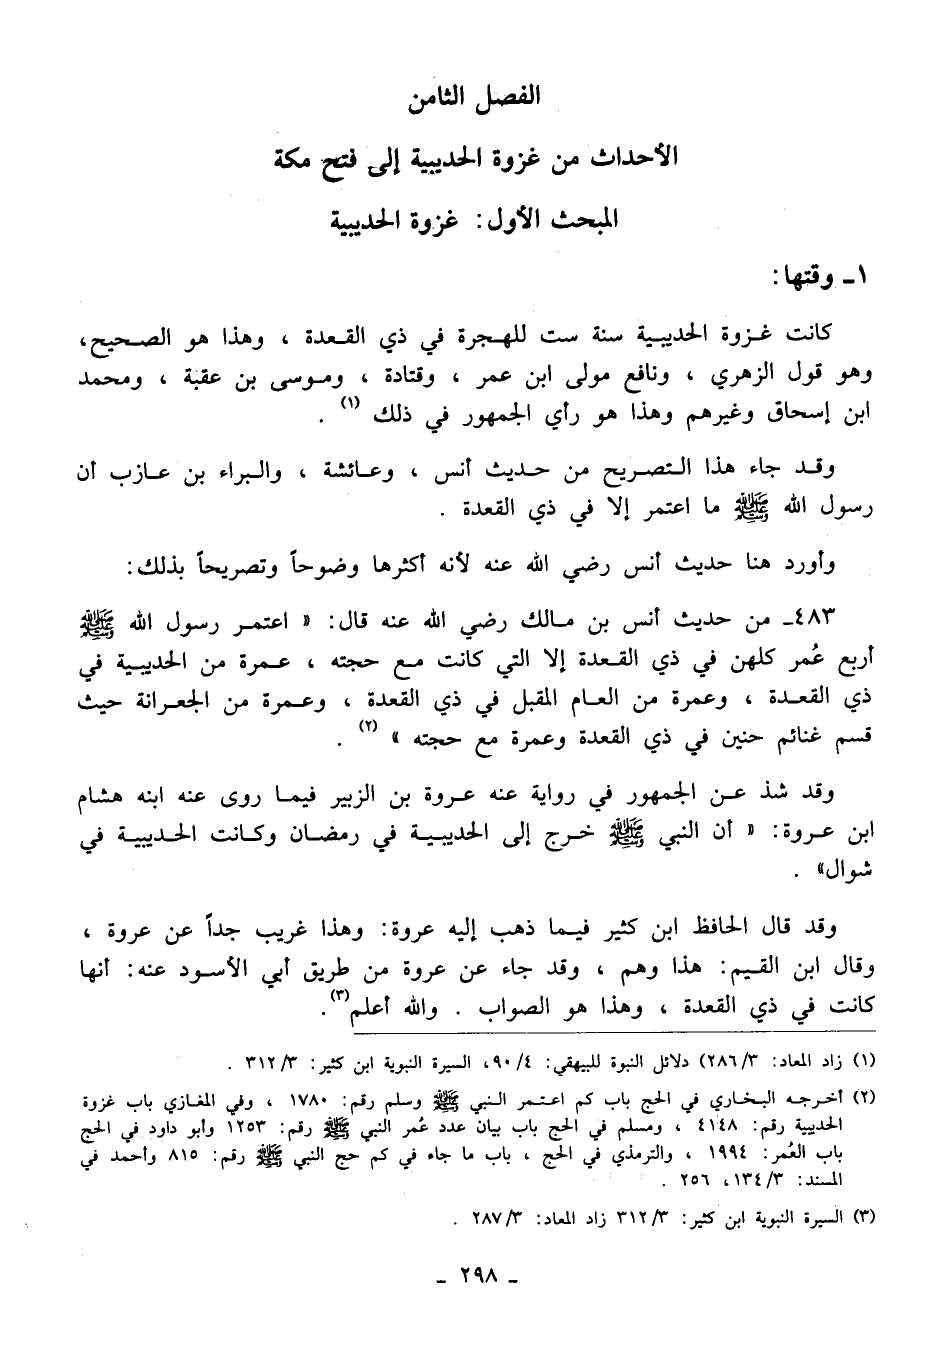 الفصل الثامن
الأحداث من غزوة الحديبية إلى فتح مكة
المبحث الأول: غزوة الحديبية
١ـ وقتها:
كانت غزوة الحديبية سنة ست للهجرة في ذي القعدة ، وهذا هو الصحيح،
وهو قول الزهري ، ونافع مولى ابن عمر ، وقتادة ، وموسى بن عقبة ، ومحمد
ابن إسحاق وغيرهم وهذا هو رأي الجمهور في ذلك (١) .
وقد جاء هذا التصريح من حديث أنس ، وعائشة ، والبراء بن عازب أن
رسول الله ﷺ ما اعتمر إلا في ذي القعدة .
وأورد هنا حديث أنس رضي الله عنه لأنه أكثرها وضوحاً وتصريحاً بذلك:
٤٨٣ـ من حديث أنس بن مالك رضي الله عنه قال: « اعتمر رسول الله ﷺ
أربع عُمر كلهن في ذي القعدة إلا التي كانت مع حجته ، عمرة من الحديبية في
ذي القعدة ، وعمرة من العام المقبل في ذي القعدة ، وعمرة من الجعرانة حيث
قسم غنائم حنين في ذي القعدة وعمرة مع حجته » (٢) .
وقد شذ عن الجمهور في رواية عنه عروة بن الزبير فيما روى عنه ابنه هشام
ابن عروة: « أن النبي ﷺ خرج إلى الحديبية في رمضان وكانت الحديبية في
شوال» .
وقد قال الحافظ ابن كثير فيما ذهب إليه عروة: وهذا غريب جداً عن عروة ،
وقال ابن القيم: هذا وهم ، وقد جاء عن عروة من طريق أبي الأسود عنه: أنها
كانت في ذي القعدة ، وهذا هو الصواب . والله أعلم(٣).
(١) زاد المعاد: ٢٨٦/٣) دلائل النبوة للبيهقي: ٩٠/٤، السيرة النبوية ابن كثير: ٣١٢/٣ .
(٢) أخرجه البخاري في الحج باب كم اعتمر النبي ﷺ وسلم رقم: ١٧٨٠ ، وفي المغازي باب غزوة
الحديبية رقم: ٤١٤٨ ، ومسلم في الحج باب بيان عدد عُمر النبي ﷺ رقم: ١٢٥٣ وأبو داود في الحج
باب العُمر: ١٩٩٤ ، والترمذي في الحج ، باب ما جاء في كم حج النبي ﷺ رقم: ٨١٥ وأحمد في
المسند: ١٣٤/٣، ٢٥٦ .
(٣) السيرة النبوية ابن كثير: ٣١٢/٣ زاد المعاد: ٢٨٧/٣ .
ـ ٢٩٨ ـ